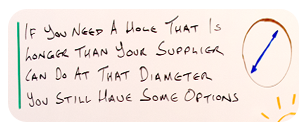 If You Need A Hole That Is
Longer Than Your Supplier
Can Do At That Diameter
You Still Have Some Options